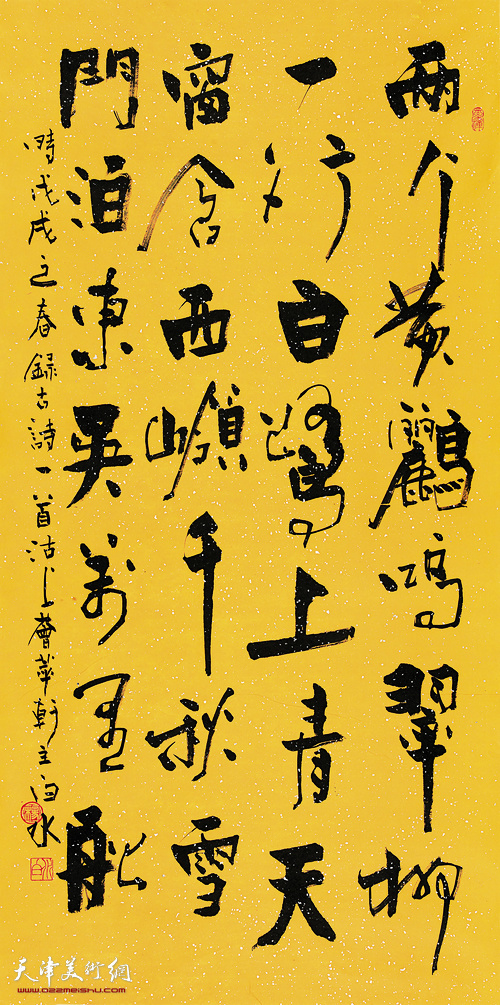 两个黄鸝鳴翠柳
一行白鷺上青天
窗含西嶺千秋雪
門泊東吳萬里船
時戊戌之春録古詩一首沽上薈萃軒主白水
天津美術網
www.022meishu.com